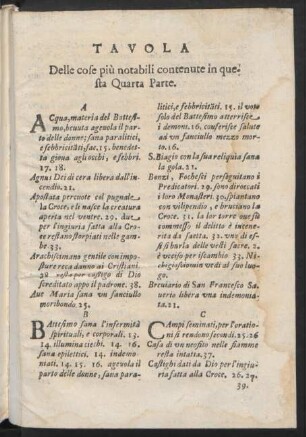 TAVOLA
Delle cose più notabili contenute in que-
sta Quarta Parte.
A
Acqua, materia del Battesi-
mo, beuuta ageuola il par-
to delle donne; sana paralitici,
e febbricitāti, &c. 15. benedet-
ta gioua agli occhi, e febbri.
17. 18.
Agnus Dei di cera libera dall'in-
cendio. 21.
Apostata percuote col pugnale
la Croce, e li nasce la creatura
aperta nel ventre. 29. due
per l'ingiuria fatta alla Cro-
ce restano storpiati nelle gam-
be. 33.
Archisimano gentile con impo-
sture reca danno ai Cristiani.
28. resta per castigo di Dio
screditato appo il padrone. 38.
Aue Maria sana vn fanciullo
moribondo. 25.
B
Battesimo sana l'infermità
spirituali, e corporali. 13.
14. illumina ciechi. 14. 16.
sana epilettici. 14. indemo-
niati. 14. 15. 16. ageuola il
parto delle donne, sana para-
litici, e febbricitāti. 15. il voto
solo del Battesimo atterrisce
i demoni. 16. conferisce salute
ad vn fanciullo mezzo mor-
to. 16.
S. Biagio con la sua reliquia sana
la gola. 21.
Bonzi, Fochesti perseguitano i
Predicatori. 29. sono diroccati
i loro Monasteri. 30. spiantano
con vilipendio, e bruciano la
Croce. 31. la lor torre oue se
commesso il delitto è incene-
rita da saetta. 31. vno di es-
si si burla delle vesti sacre. 2.
è vcciso per iscambio. 33.
vedi al suo luo-
go.
Breuiario di San Francesco Sa-
uerio libera vna indemonia-
ta. 21.
C
Campi seminati, per l'oratio-
ni si rendono fecondi. 25. 26
Casa di vn neofito nelle fiamme
resta intatta. 37.
Castighi dati da Dio per l'ingiu-
ria fatta alla Croce, 26. 27.
39.